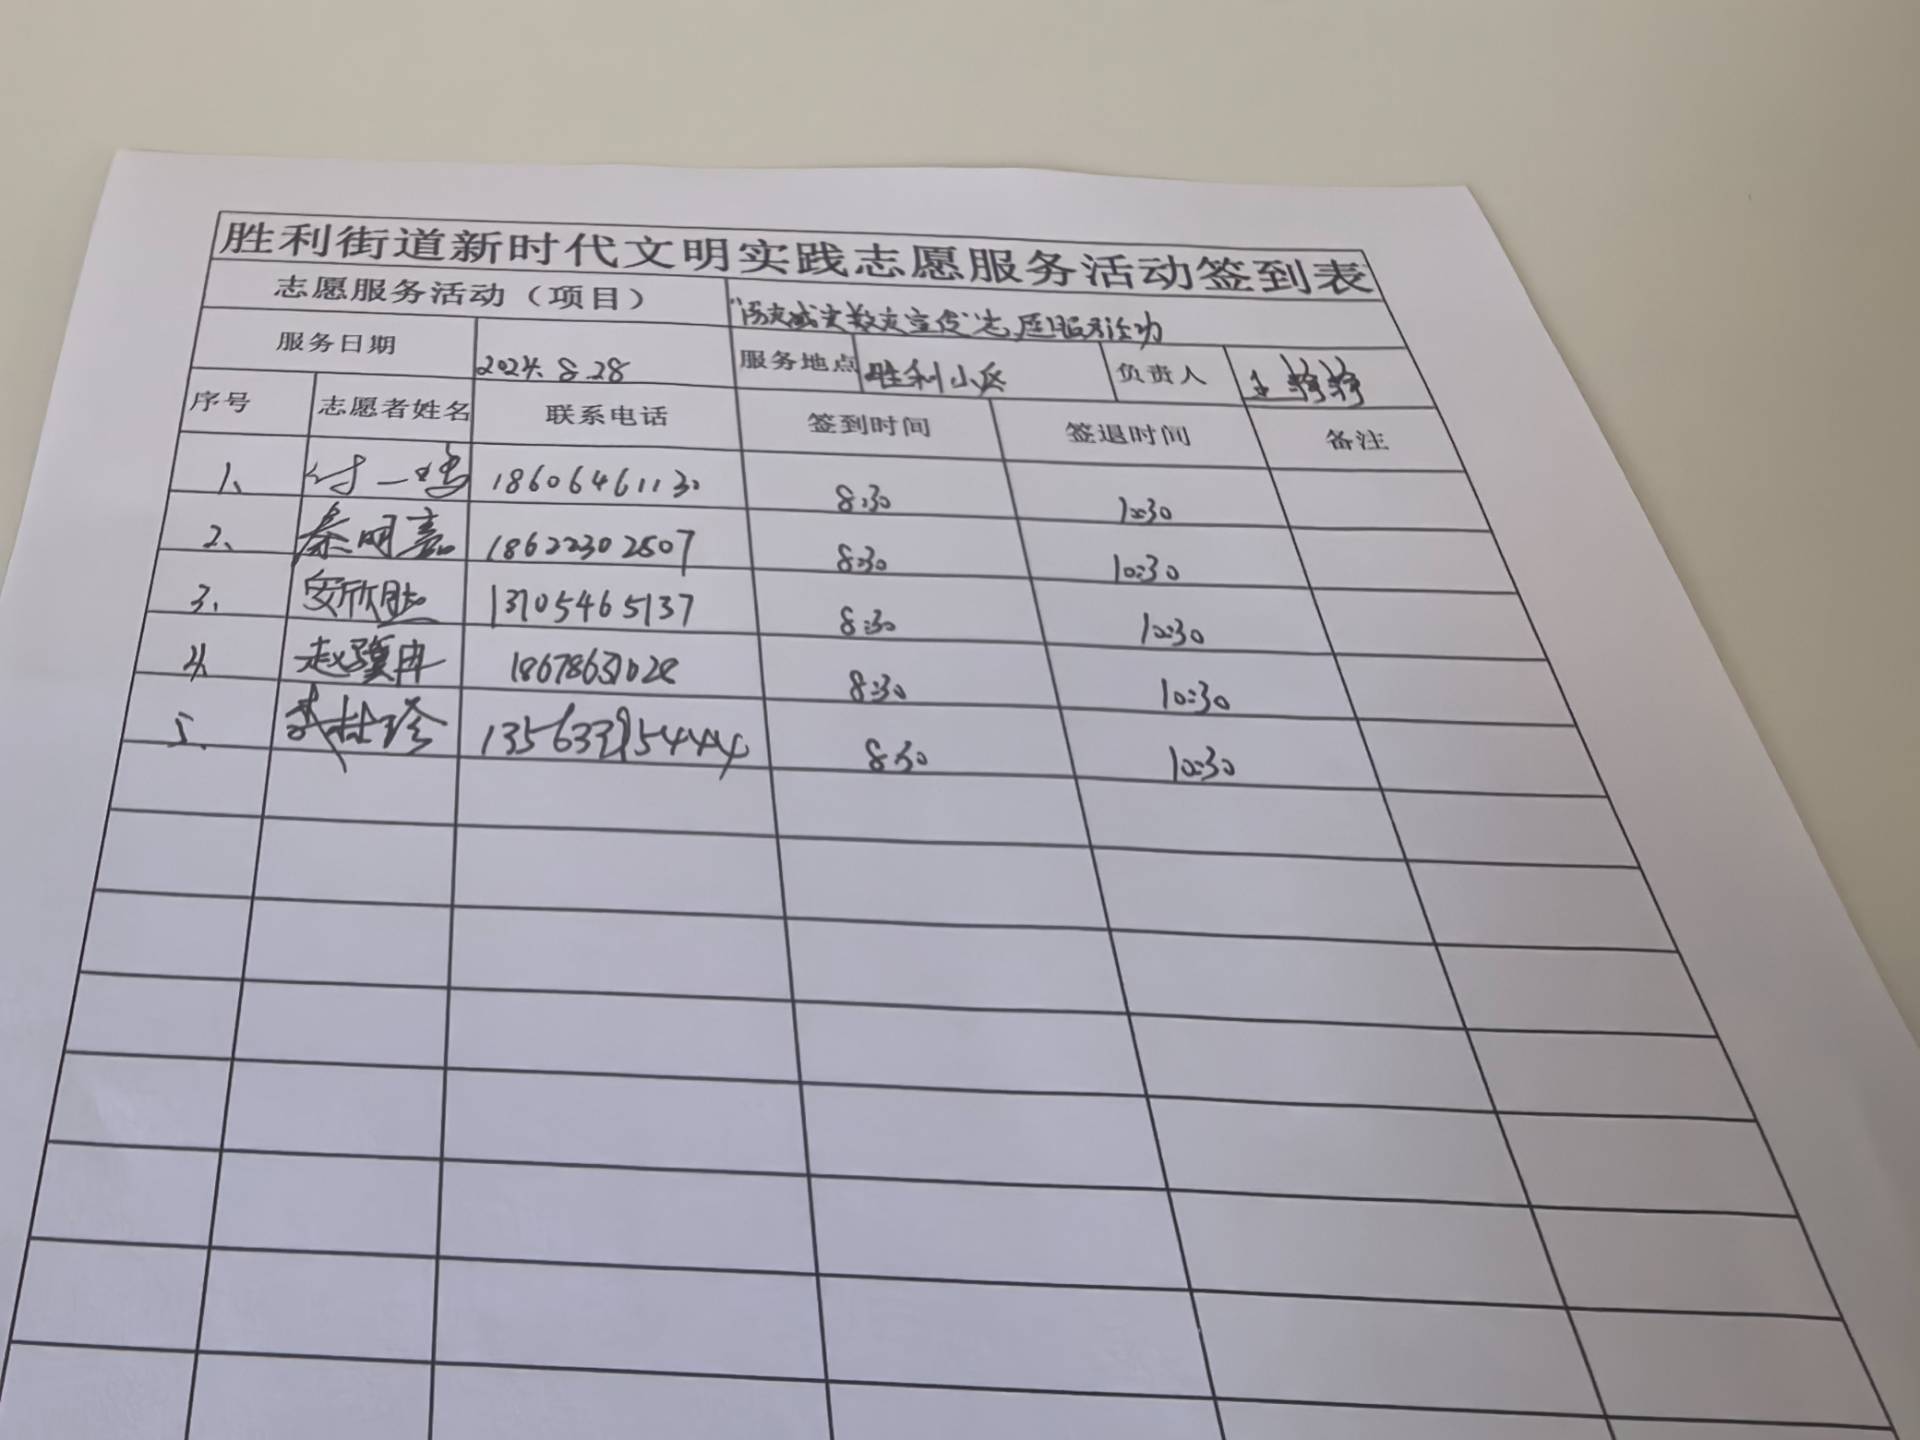 胜利街道新时代文明实践志愿服务活动签到表
志愿服务活动（项目） 宣传"志愿服务活动
服务日期 2024.8.28 服务地点 胜利小区 负责人 王
序号 志愿者姓名 联系电话 签到时间 签退时间 备注
1、 付一鸣 18606461130 8:30 10:30
2、 秦明嘉 18622302507 8:30 10:30
3、 安欣 13705465137 8:30 10:30
4、 赵骥冉 18678631028 8:30 10:30
5、 8:30 10:30